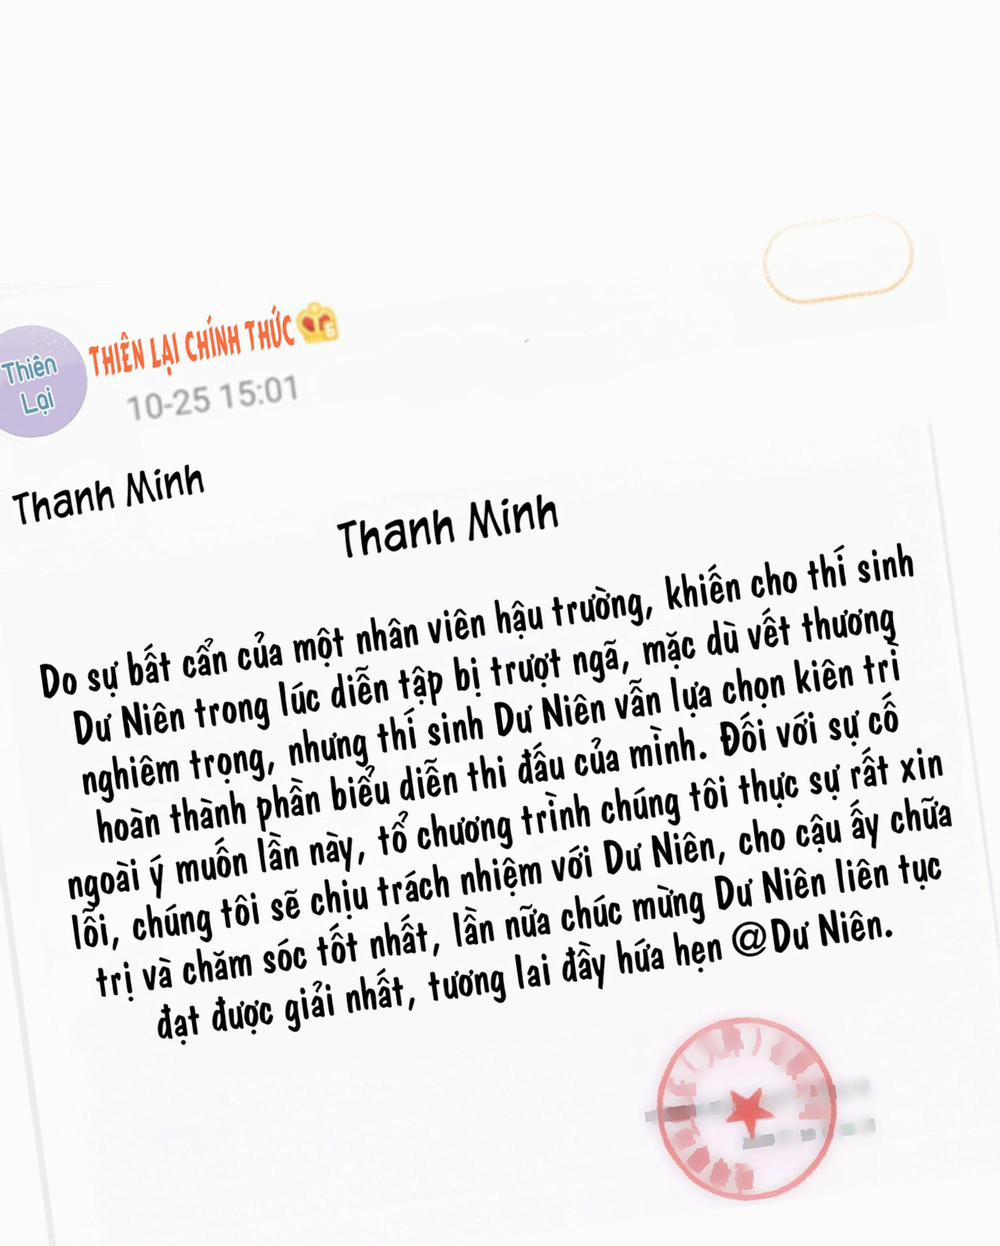 Thiên
Lại
THIÊN LẠI CHÍNH THỨC
10-25 15:01
Thanh Minh
Thanh Minh
Do sự bất cẩn của một nhân viên hậu trường, khiến cho thí sinh
Dư Niên trong lúc diễn tập bị trượt ngã, mặc dù vết thương
nghiêm trọng, nhưng thí sinh Dư Niên vẫn lựa chọn kiên trì
hoàn thành phần biểu diễn thi đấu của mình. Đối với sự cố
ngoài ý muốn lần này, tổ chương trình chúng tôi thực sự rất xin
lỗi, chúng tôi sẽ chịu trách nhiệm với Dư Niên, cho cậu ấy chữa
trị và chăm sóc tốt nhất, lần nữa chúc mừng Dư Niên liên tục
đạt được giải nhất, tương lai đầy hứa hẹn @Dư Niên.